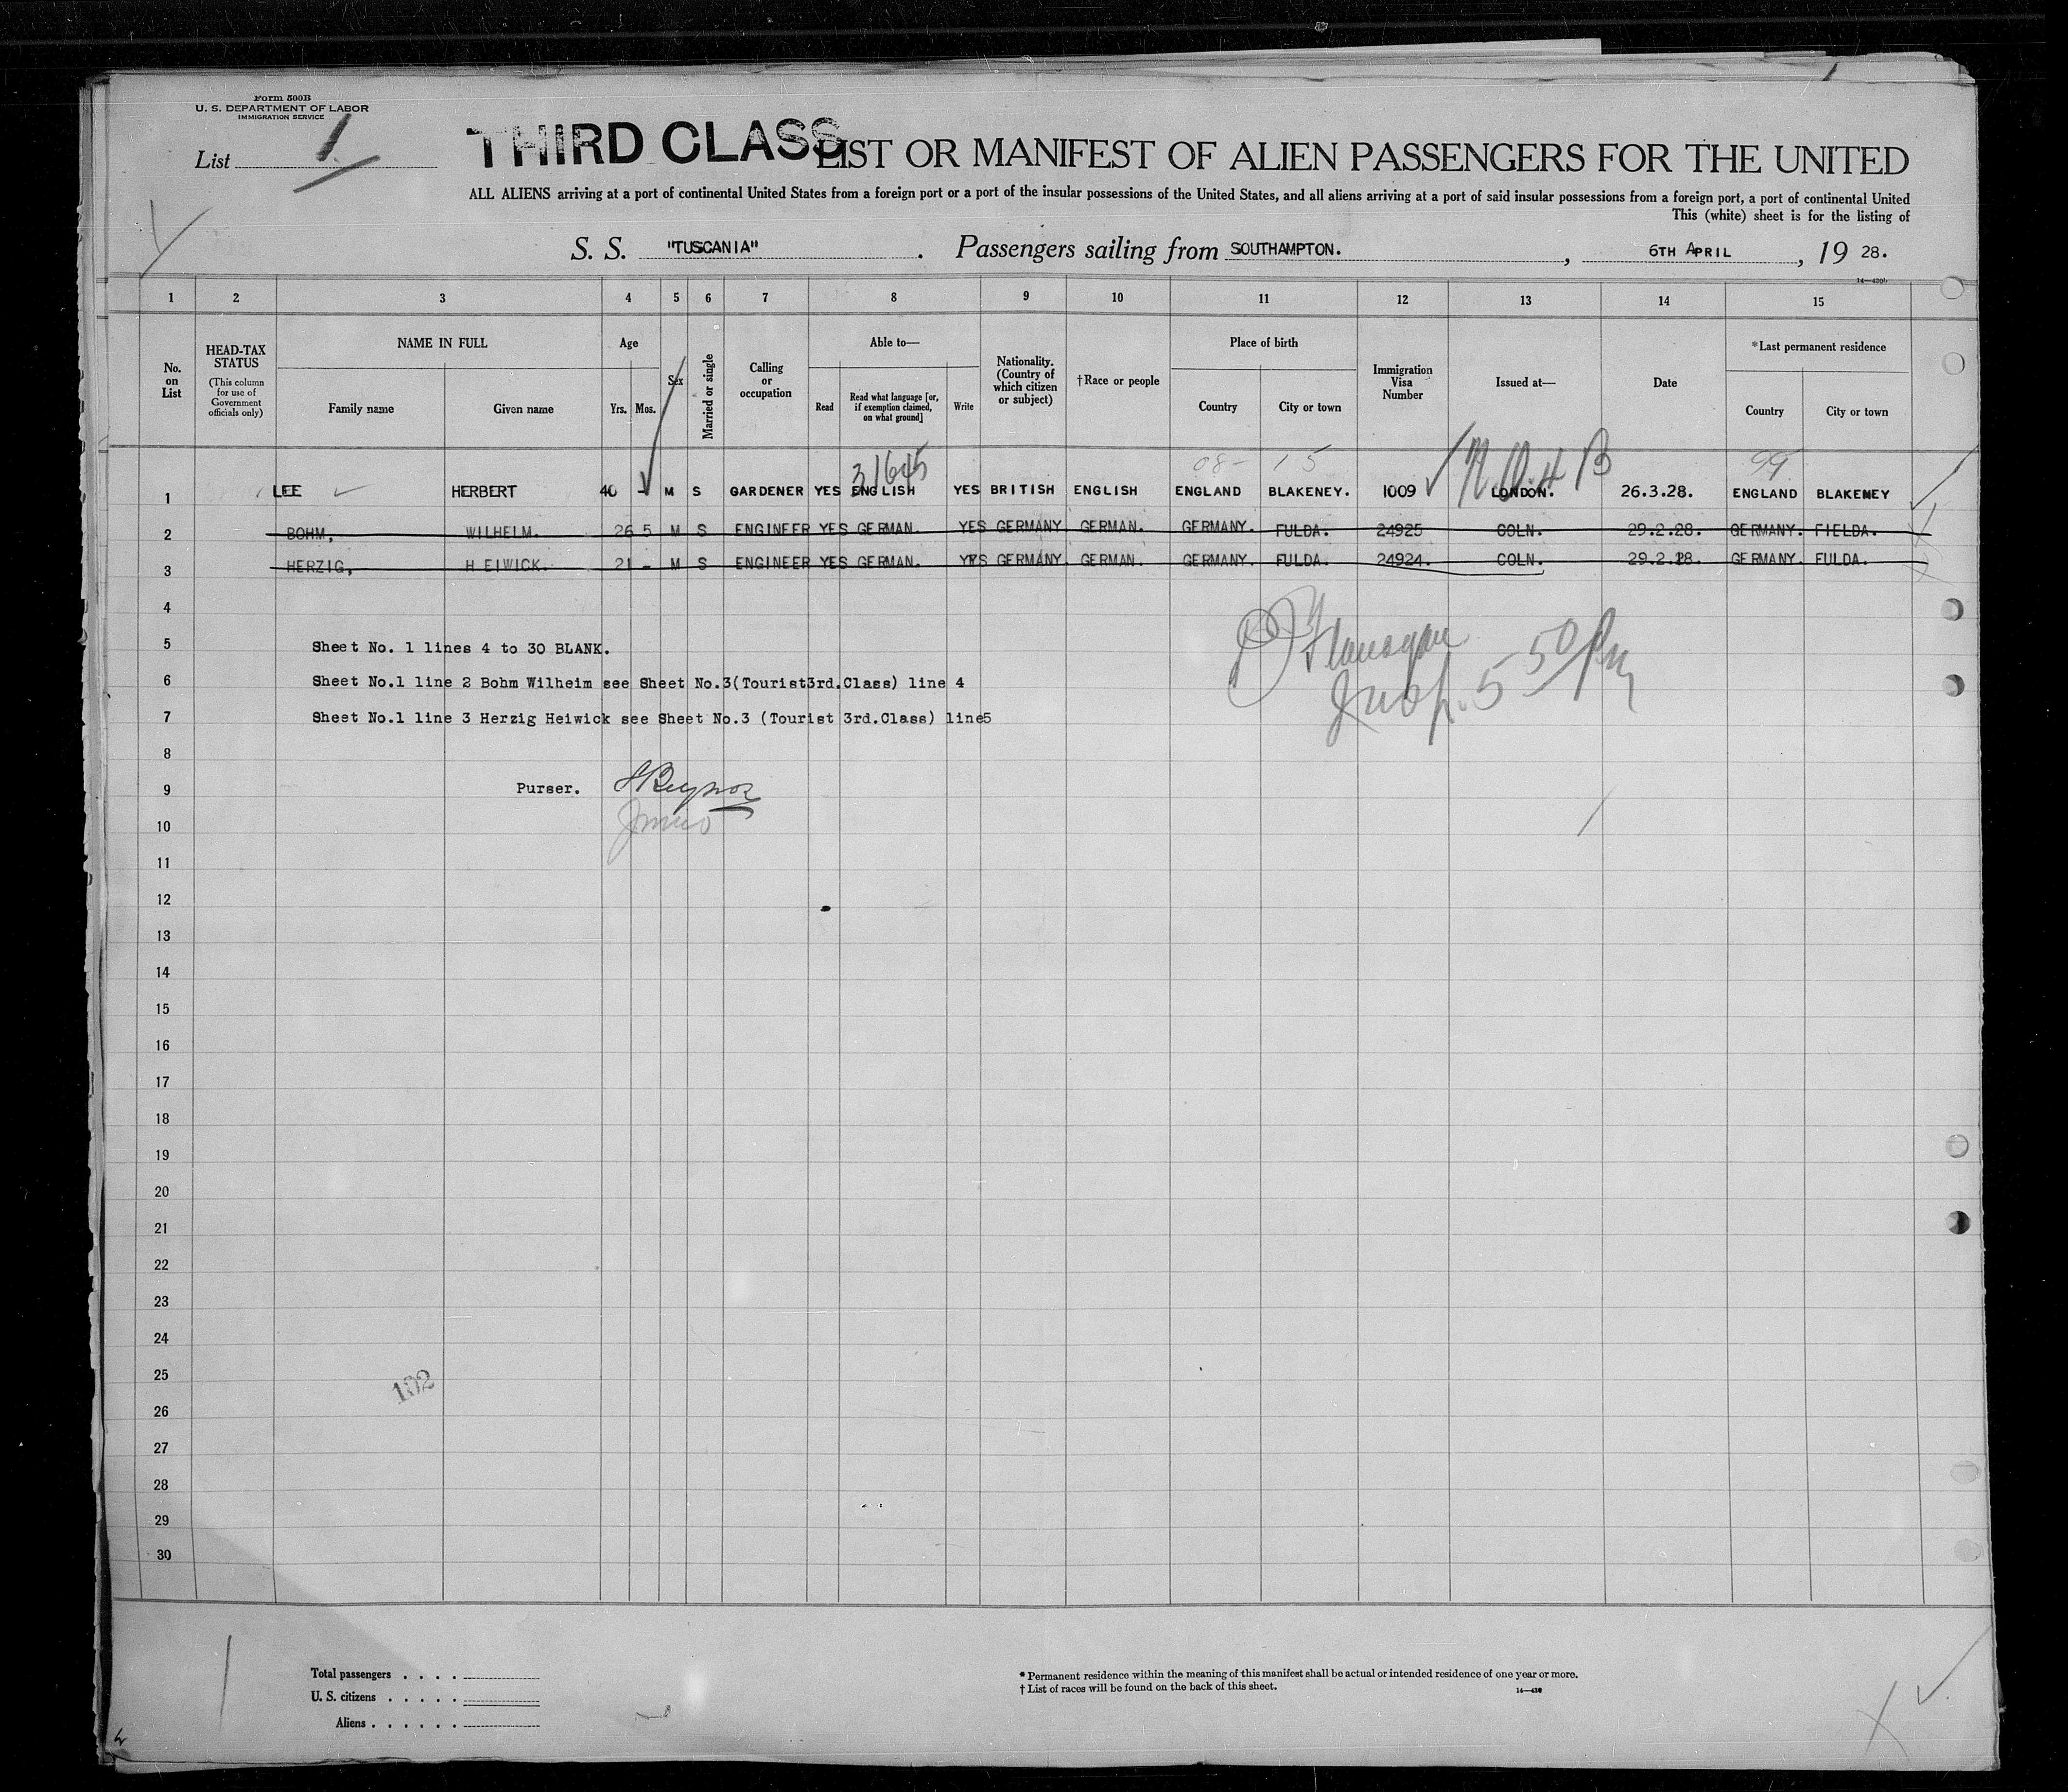 Form 500B
U. S. DEPARTMENT OF LABOR
IMMIGRATION SERVICE
List 1
THIRD CLASS
LIST OR MANIFEST OF ALIEN PASSENGERS FOR THE UNITED
ALL ALIENS arriving at a port of continental United States from a foreign port or a port of the insular possessions of the United States, and all aliens arriving at a port of said insular possessions from a foreign port, a port of continental United
This (white) sheet is for the listing of
S. S. "TUSCANIA" . Passengers sailing from SOUTHAMPTON. , 6TH APRIL , 19 28.
1 2 3 4 5 6 7 8 9 10 11 12 13 14 15
No. on List
HEAD-TAX STATUS
(This column for use of Government officials only)
NAME IN FULL
Family name
Given name
Age
Yrs. Mos.
Sex
Married or single
Calling or occupation
Able to—
Read
Read what language [or, if exemption claimed, on what ground]
Write
Nationality. (Country of which citizen or subject)
†Race or people
Place of birth
Country
City or town
Immigration Visa Number
Issued at—
Date
*Last permanent residence
Country
City or town
31645 08- 15 99
1 LEE HERBERT 40 - M S GARDENER YES ENGLISH YES BRITISH ENGLISH ENGLAND BLAKENEY. 1009 LONDON. 26.3.28. ENGLAND BLAKENEY
2 BOHM, WILHELM. 26 5 M S ENGINEER YES GERMAN. YES GERMANY GERMAN. GERMANY. FULDA. 24925 COLN. 29.2.28. GERMANY. FIELDA.
3 HERZIG, HEIWICK. 21 - M S ENGINEER YES GERMAN. YES GERMANY. GERMAN. GERMANY. FULDA. 24924. COLN. 29.2.28. GERMANY. FULDA.
4
5 Sheet No. 1 lines 4 to 30 BLANK.
6 Sheet No.1 line 2 Bohm Wilheim see Sheet No.3(Tourist3rd.Class) line 4
7 Sheet No.1 line 3 Herzig Heiwick see Sheet No.3 (Tourist 3rd.Class) line5
Flanagan
Insp. 5 50 Pm
8
9 Purser.
10
11
12
13
14
15
16
17
18
19
20
21
22
23
24
25
102
26
27
28
29
30
Total passengers . . . .
U. S. citizens . . . . .
Aliens . . . . . .
* Permanent residence within the meaning of this manifest shall be actual or intended residence of one year or more.
† List of races will be found on the back of this sheet.